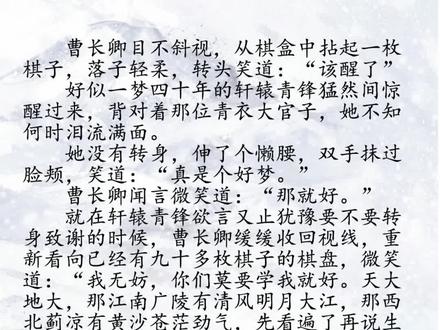 曹长卿目不斜视，从棋盒中拈起一枚
棋子，落子轻柔，转头笑道：“该醒了”
好似一梦四十年的轩辕青锋猛然间惊
醒过来，背对着那位青衣大官子，她不知
何时泪流满面。
她没有转身，伸了个懒腰，双手抹过
脸颊，笑道：“真是个好梦。”
曹长卿闻言微笑道：“那就好。”
就在轩辕青锋欲言又止犹豫要不要转
身致谢的时候，曹长卿缓缓收回视线，重
新看向已经有九十多枚棋子的棋盘，微笑
道：“我无妨，你们莫要学我就好。天大
地大，那江南广陵有清风明月大江，那西
北蓟凉有黄沙苍茫劲气，先看遍了再说生